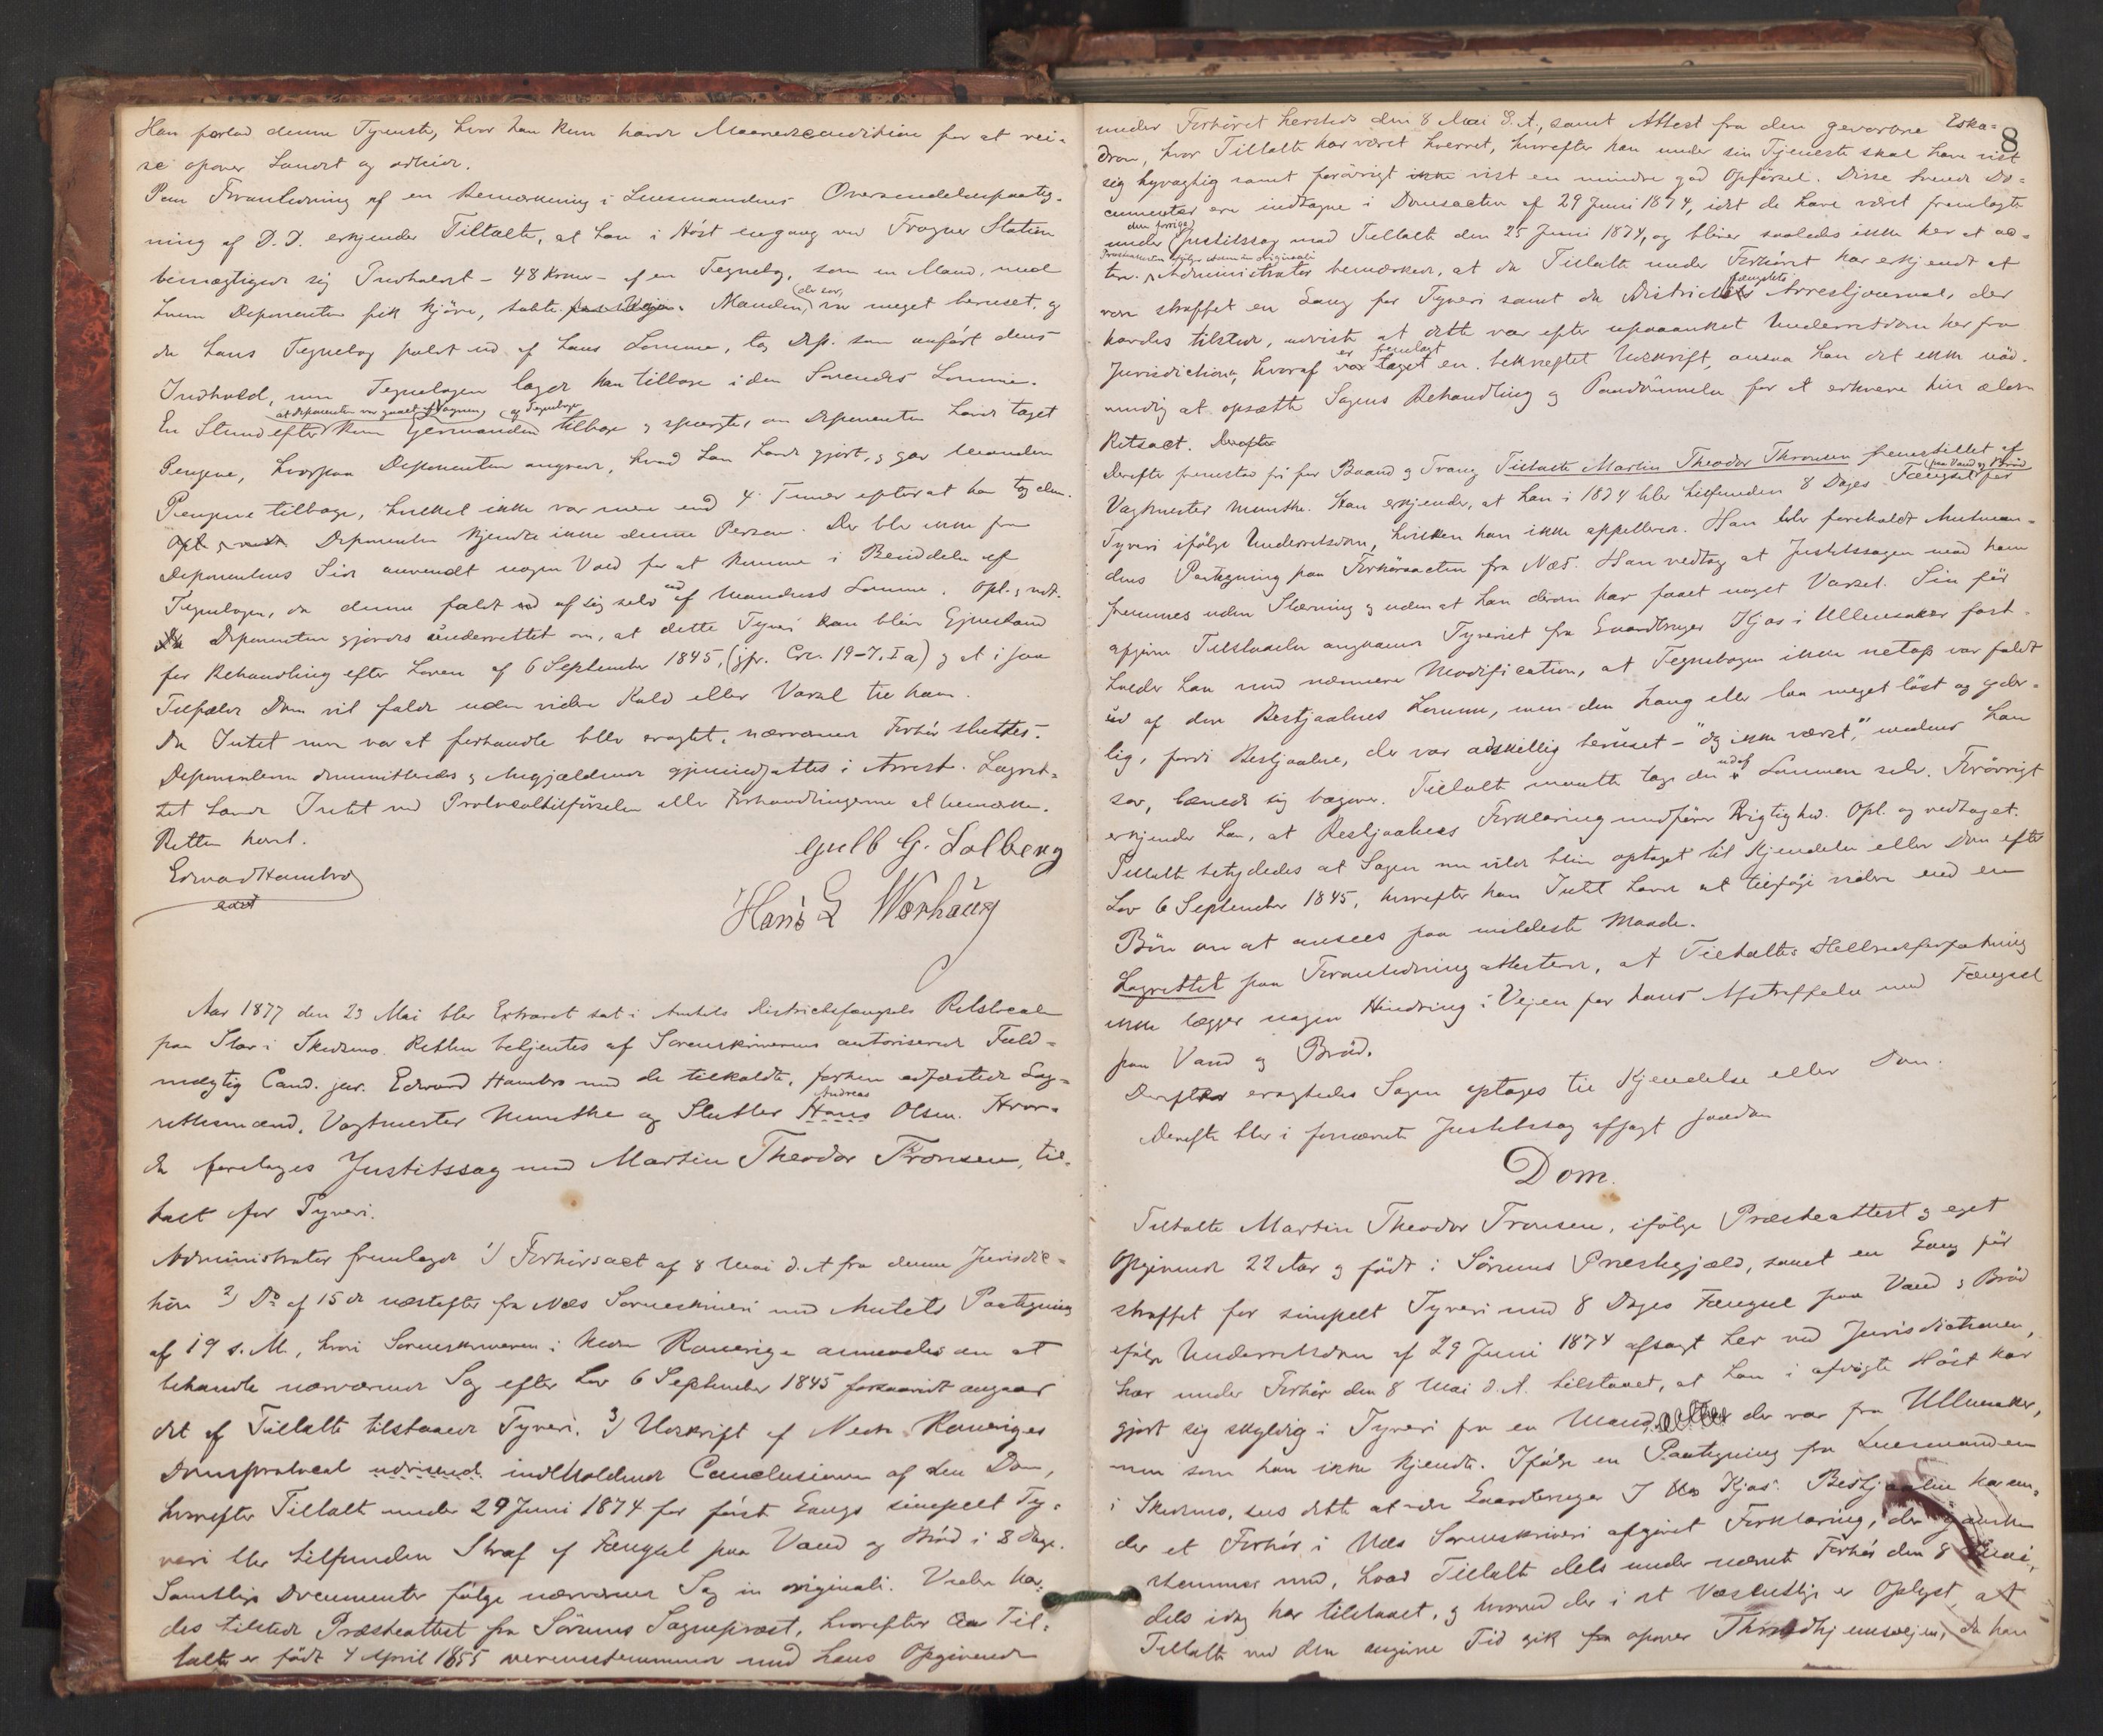 Han forlod denne Tjeneste, hvor han kun havde Maanedscondition for at rei-
se opover Landet og arbeide.
Paa Foranledning af en Bemærkning i Lensmandens Oversendelsespaateg-
ning af D. D. erkjender Tiltalte, at han i Höst engang ved Frogner Station
bemægtigede sig Indholdet - 48 Kroner - af en Tegnebog, som en Mand, med
hvem Deponenten fik kjöre, tabte. Manden, der sov, var meget beruset, og
da hans Tegnebog faldt ud af hans Lomme, tog Dep. som anfört dens
Indhold, men Tegnebogen lagde han tilbage i den Sovendes Lomme.
En Stund efter at Deponenten var gaaet af Vognen kom Eiermanden og Tegnebogen tilbage og spurgte, om Deponenten havde taget
Pengene, hvorpaa Deponenten angrede, hvad han havde gjort, og gav Manden
Pengene tilbage, hvilket ikke var mere end 4 Timer efterat han tog dem.
Opl. og vedt. Deponenten kjendte ikke denne Person. Der blev ikke fra
Deponentens Side anvendt nogen Vold for at komme i Besiddelse af
Tegnebogen, da denne faldt ud af sig selv ud af Mandens Lomme. Opl. og vedt.
Deponenten gjordes underrettet om, at dette Tyveri kan blive Gjenstand
for Behandling efter Loven af 6 September 1845, (jfr. Crl. 19-7, I a) og at i saa
Tilfælde Dom vil falde uden videre Kald eller Varsel til ham.
Da Intet mere var at forhandle blev eragtet: nærværende Forhör sluttes.
Deponenterne demitteredes og Angjældende gjenindsattes i Arrest. Lagret-
tet havde Intet ved Protocoltilförselen eller Forhandlingerne at bemærke.
Retten hævet.
Edvard Hambro
edst
Gulb G. Solberg
Hans L Wærhaug
Aar 1877 den 23 Mai blev Extraret sat i Amtets Districtsfængsels Retslocale
paa Stav i Skedsmo. Retten betjentes af Sorenskriverens autoriserede Fuld-
mægtig Cand. jur. Edvard Hambro med de tilkaldte, forhen edfæstede Lag-
rettesmænd, Vagtmester Munthe og Slutter Hans Andreas Olsen. Hvor-
da foretoges Justitssag mod Martin Theodor Tronsen, til-
talt for Tyveri.
Administrator fremlagde 1) Forhörsact af 8 Mai d. A. fra denne Jurisdic-
tion 2) Do af 15de næstefter fra Næs Sorenskriveri med Amtets Paategning
af 19 s. M., hvori Sorenskriveren i Nedre Romerige anmodes om at
behandle nærværende Sag efter Lov 6 September 1845 forsaavidt angaar
det af Tiltalte tilstaaede Tyveri. 3) Udskrift af Nedre Romeriges
Domsprotocol udvisende indholdende Conclusionen af den Dom,
hvorefter Tiltalte under 29 Juni 1874 for förste Gangs simpelt Ty-
veri blev tilfunden Straf af Fængsel paa Vand og Bröd i 8 Dage.
Samtlige Documenter fölge nærværende Sag in originali. Videre hav-
des tilstede Præsteattest fra Sörums Sogneprest, hvorefter Til-
talte er födt 4 April 1855 overensstemmende med hans Opgivende
8
under Forhöret hersteds den 8 Mai d. A., samt Attest fra den gevorbne Eska-
dron, hvor Tiltalte har været hvervet, hvorefter han under sin Tjeneste skal have vist
sig hyragtig samt forövrigt vist en mindre god Opförsel. Disse tvende Do-
cumenter ere indtagne i Domsacten af 29 Juni 1874, idet de have været fremlagte
under den forrige Justitssag mod Tiltalte den 25 Juni 1874, og bliver saaledes ikke her at ac-
tere. Administrator bemærkede, at da Tiltalte under Forhöret har erkjendt at
være straffet en Gang for Tyveri samt da Districtsfængslets Arrestjournal, der
havdes tilstede, udviste at dette var efter upaaanket Underretsdom her fra
Jurisdictionen, hvoraf er fremlagt en bekræftet Udskrift, ansaa han det ikke nöd-
vendig at opsætte Sagens Behandling og Paadömmelse for at erhverve hin ældre
Retsact. Derefter
Derefter fremstod fri for Baand og Tvang Tiltalte Martin Theodor Thronsen fremstillet af
Vagtmester Munthe. Han erkjender, at han i 1874 blev tilfunden 8 Dages Fængsel paa Vand og Bröd for
Tyveri ifölge Underretsdom, hvilken han ikke appellerede. Han blev foreholdt Amtman-
dens Paategning paa Forhörsacten fra Næs. Han vedtog at Justitssagen mod ham
fremmes uden Stævning og uden at han derom har faaet noget Varsel. Sin för
afgivne Tilstaaelse angaaende Tyveriet fra Gaardbruger Kjos i Ullensaker fast-
holder han med nærmere Modification, at Tegnebogen ikke netop var faldt
ud af den Bestjaalnes Lomme, men den hang eller laa meget löst og gader-
lig, fordi Bestjaalne, der var adskillig beruset - "og ikke værst", medens han
sov, lænede sig bagover. Tiltalte maatte tage den ud af Lommen selv. Forövrigt
erkjender han, at Bestjaalnes Forklaring medförer Rigtighed. Opl. og vedtaget.
Tiltalte betydedes at Sagen nu vilde blive optaget til Kjendelse eller Dom efter
Lov 6 September 1845, hvorefter han Intet havde at tilföie videre end en
Bön om at ansees paa mildeste Maade.
Lagrettet paa Foranledning attesterede, at Tiltaltes Helbredsforfatning
ikke lægger nogen Hindring i Vejen for hans Afstraffelse med Fængsel
paa Vand og Bröd.
Derefter eragtedes Sagen optages til Kjendelse eller Dom.
Derefter blev i fornævnte Justitssag afsagt saadan
Dom.
Tiltalte Martin Theodor Tronsen, ifölge Præsteattest og eget
Opgivende 22 Aar og födt i Sörums Præstegjæld, samt en Gang för
straffet for simpelt Tyveri med 8 Dages Fængsel paa Vand og Bröd
ifölge Underretsdom af 29 Juni 1874 afsagt her ved Jurisdictionen,
har under Forhör den 8 Mai d. A. tilstaaet, at han i afvigte Höst har
gjort sig skyldig i Tyveri fra en Mand, der var fra Ullensaker,
men som han ikke kjendte. Ifölge en Paategning fra Lensmanden
i Skedsmo, sees dette at være Gaardbruger Kjos. Bestjaalne har un-
der et Forhör i Næs Sorenskriveri afgivet Forklaring, der ganske
stemmer med, hvad Tiltalte dels under nævnte Forhör den 8 Mai,
dels idag har tilstaaet, og hvorved der i det Væsentlige er Oplyst, at
Tiltalte ved den angivne Tid gik opover Throndhjemsvejen, da han